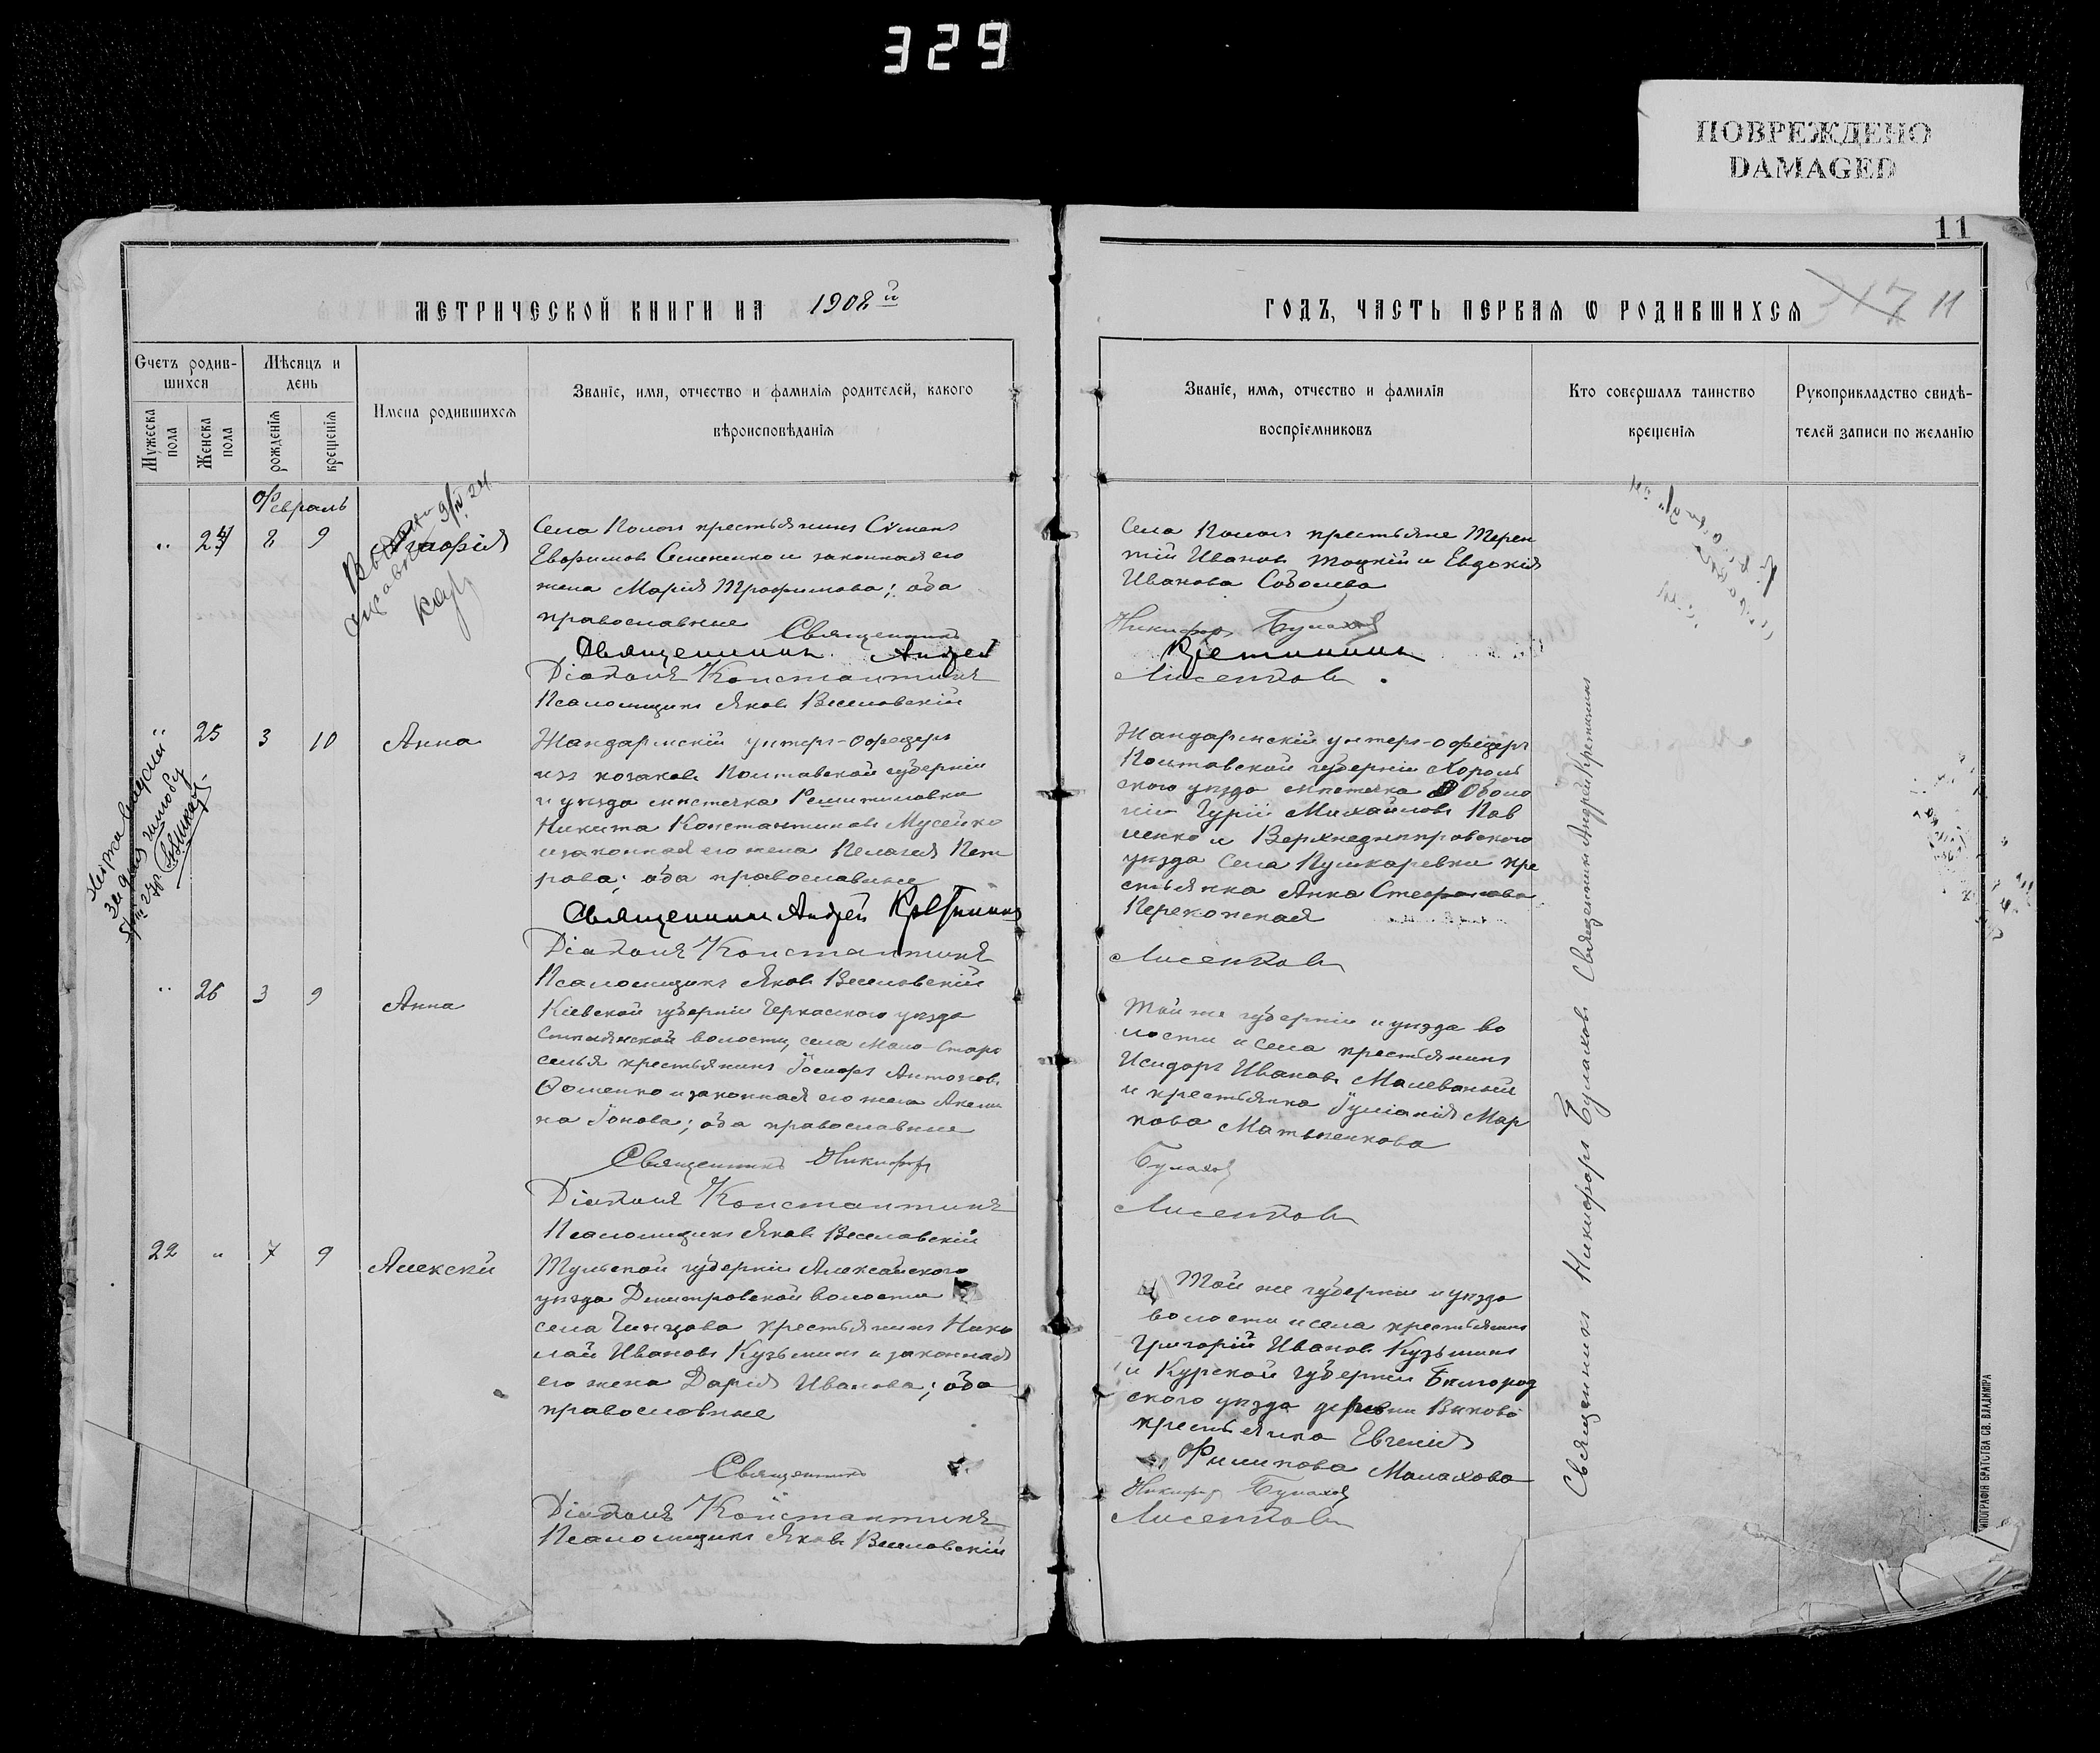 329
ПОВРЕЖДЕНО
DAMAGED
11
МЕТРИЧЕСКОЙ КНИГИ НА 1908й
ГОДЪ, ЧАСТЬ ПЕРВАЯ Ѡ РОДИВШИХСЯ
317 11
Счетъ родив-
шихся
Мужеска пола
Женска пола
Мѣсяцъ и
день
рожденія
крещенія
Имена родившихся
Званіе, имя, отчество и фамилія родителей, какого
вѣроисповѣданія
Званіе, имя, отчество и фамилія
воспріемниковъ
Кто совершалъ таинство
крещенія
Рукоприкладство свидѣ-
телей записи по желанію
Февраль
24 2 9
Села Пологъ крестьянинъ Сѵмеонъ
Евфимовъ Семененко и законная его
жена Марія Трофимова; оба
православные
Священникъ
Священникъ Андрей
Діаконъ Константинъ
Псаломщикъ Яковъ Веселовскій
Села Пологъ крестьяне Терен
тій Ивановъ Тоцкій и Евдокія
Иванова Соболева
Никифоръ Булаховъ
Кретининъ
Лисенковъ
25 3 10 Анна
Жандармскій унтеръ-офицеръ
изъ козаковъ Полтавской губерніи
и уѣзда мѣстечка Решитиловки
Никита Константиновъ Мусейко
и законная его жена Пелагія Пет
рова; оба православные
Священникъ Андрей Кретининъ
Діаконъ Константинъ
Псаломщикъ Яковъ Веселовскій
Жандармскій унтеръ-офицеръ
Полтавской губерніи Хороль
скаго уѣзда мѣстечка Оболо
ни Гурій Михайловъ Пав
ленко и Верхнеднѣпровскаго
уѣзда села Пушкаревки кре
стьянка Анна Стефанова
Перекопская
Лисенковъ
26 3 9 Анна
Кіевской губерніи Черкасскаго уѣзда
волости, села Мало-Старо
селья крестьянинъ Іосифъ Антоновъ
Фоменко и законная его жена Акили
на Іонова; оба православные
Священникъ Никифоръ
Діаконъ Константинъ
Псаломщикъ Яковъ Веселовскій
Той же губерніи и уѣзда во
лости и села крестьянинъ
Исидоръ Ивановъ Малеваный
и крестьянка Іуліанія Мар
кова Матвѣенкова
Булаховъ
Лисенковъ
22 " 7 9 Алексѣй
Тульской губерніи Алексинскаго
уѣзда Дмитровской волости
села крестьянинъ Нико
лай Ивановъ Кузьминъ и законная
его жена Дарія Иванова; оба
православные
Священникъ
Діаконъ Константинъ
Псаломщикъ Яковъ Веселовскій
Той же губерніи и уѣзда
волости и села крестьянинъ
Григорій Ивановъ Кузьминъ
и Курской губерніи Бѣлгород
скаго уѣзда деревни
крестьянка Евгенія
Филипова Малахова
Никифоръ Булаховъ
Лисенковъ
Священники Никифоръ Булаховъ Священникъ Андрей Кретининъ
ТИПОГРАФІЯ БРАТСТВА СВ. ВЛАДИМІРА